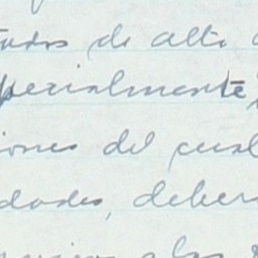 tados de alta
specialmente,
iones del cual
dades, deber